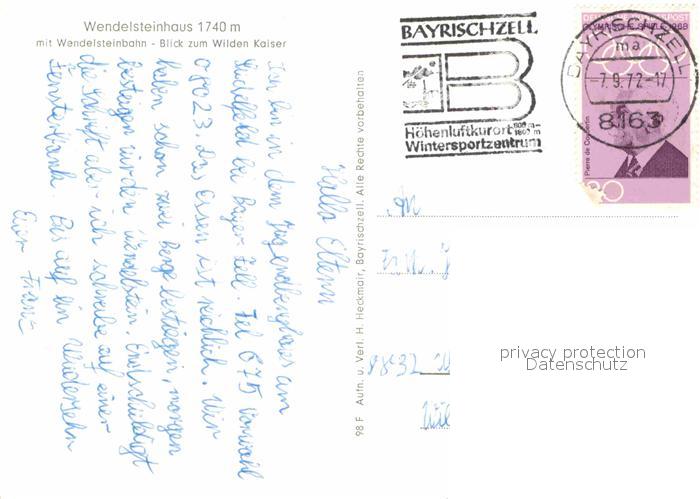 Wendelsteinhaus 1740 m
mit Wendelsteinbahn - Blick zum Wilden Kaiser
BAYRISCHZELL
B
Höhenluftkurort 800 m-1800 m
Wintersportzentrum
BAYRISCHZELL
ma
-7.9.72-17
8163
DEUTSCHE BUNDESPOST
OLYMPISCHE SPIELE 1968
Pierre de Coubertin
Hallo Eltern
Ich bin in dem Jugendberghaus am
Sudelfeld bei Bayr. Zell. Tel 675 Vorwahl
08023. Das Essen ist reichlich. Wir
haben schon zwei Berge bestiegen, morgen
besteigen wir den Wendelstein. Entschuldigt
die Schrift aber ich schreibe auf einer
Fensterbank. Bis auf ein Wiedersehn
Euer Franz
98 F Aufn. u. Verl. H. Heckmair, Bayrischzell. Alle Rechte vorbehalten
An
8832
privacy protection
Datenschutz